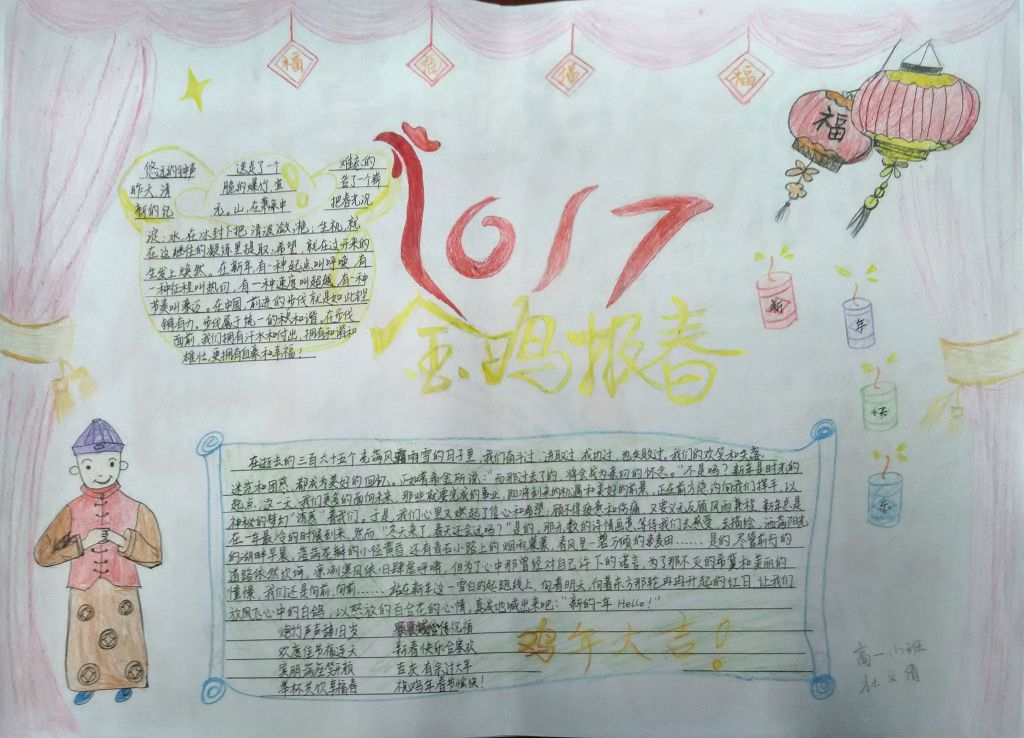 福
福
福
福
福
2017
金鸡报春
悠远的钟声 送走了一个 难忘的
昨天,清 脆的爆竹,宣 告了一个崭
新的纪 元。山,在 中 把春光沉
淀;水,在冰封下把清波潋滟,生机,就
在这 里提取;希望,就在这 的
生发上焕然。在新年,有一种起点叫呼唤,有
一种征程叫热切,有一种速度叫超越,有一种
节奏叫豪迈。在中国,前进的步伐就是如此铿
锵有力,步伐属于统一的 和谐,在步伐
面前,我们拥有汗水和付出,拥有和谐和
雄壮,更拥有自豪和幸福!
新
年
快
乐
在逝去的三百六十五个充满风霜雨雪的日子里,我们奋斗过,进取过,成功过,也失败过,我们的欢笑和失落
迷茫和困惑,都成为美好的回忆,正如普希金所说:“而那过去了的,将会成为亲切的怀念。”不是吗?新年是时光的
起点,这一天,我们更多的面向未来,那些就要完成的事业,即将到来的机属和美好的前景,正在前方殷 向我们挥手,以
神秘的梦幻“诱惑”着我们。于是,我们心里又燃起了信心和希望,顾不得疲惫和伤痛,又要义无反顾风雨兼程,新年总是
在一年最冷的时候到来,然而“冬天来了,春天还会远吗?”是的,那无数的诗情画意等待我们去感受,去描绘,洒满阳光
的湖畔早晨,落满花瓣的小径黄昏,还有青石小路上的烟雨 ,春风里一望万顷的麦田……是的,尽管前行的
道路依然坎坷,凛冽寒风依旧肆虐呼啸,但为了心中那曾经对自己许下的诺言,为了那不灭的希冀和美丽的
憧憬,我们还是向前,向前……站在新年这一雪白的起跑线上,向着明天,向着东方那轮冉冉升起的红日,让我们
放飞心中的白鸽,以怒放的百合花的心情,真诚地喊出来吧:“新的一年 Hello!”
炮竹声声辞旧岁 传祝福
欢度佳节福连天 新春快乐合家欢
宾朋满座笑开颜 吉庆有余过大年
举杯共饮幸福春 祝鸡年春节愉快!
鸡年大吉!
高一 班
杜文倩